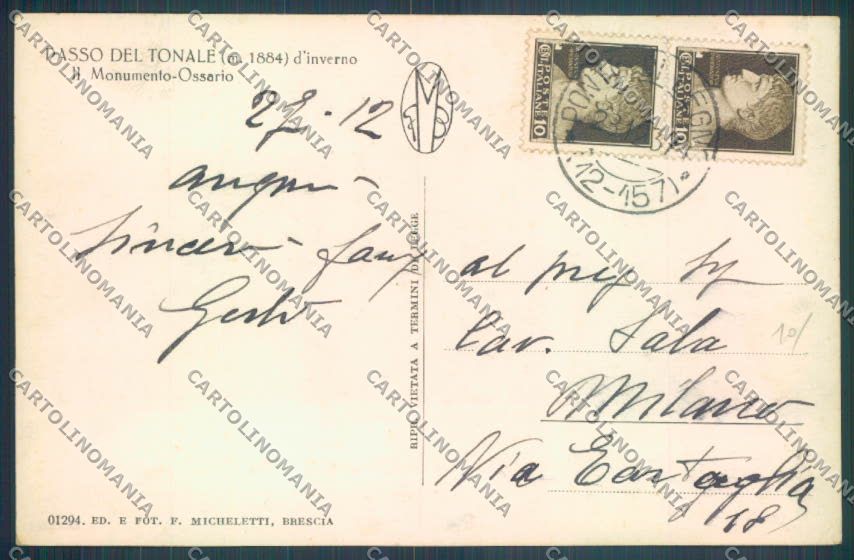 PASSO DEL TONALE (m. 1884) d'inverno
Il Monumento-Ossario
27-12
auguri
sinceri
al preg Sg
Cav. Sala
Milano
Via Tartaglia
18
RIPR. VIETATA A TERMINI DI LEGGE
01294. ED. E FOT. F. MICHELETTI, BRESCIA
POSTE ITALIANE
10
POSTE ITALIANE
10
(12-157)
10/
CARTOLINOMANIA